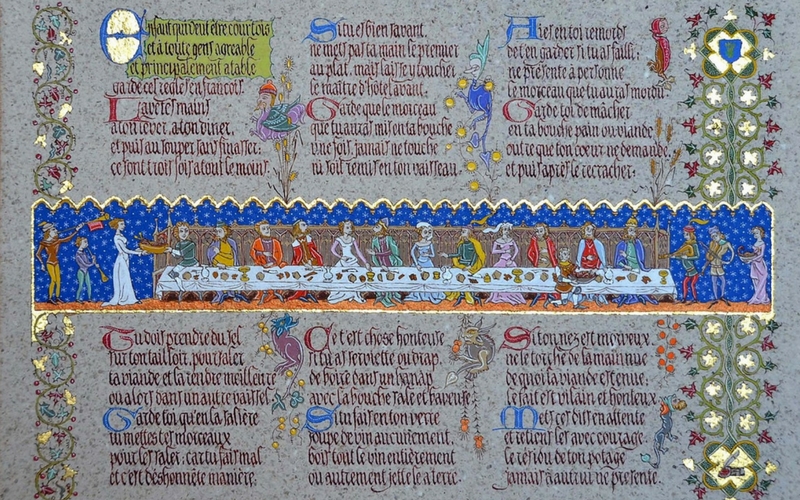 Enfant qui veut être courtois
et à toute gens agréable
et principalement a table
garde ces regles en françois.
Lave tes mains
a ton lever, a ton diner,
et puis au souper sans finasser:
ce sont trois fois a tout le moins.
Si tu es bien savant,
ne mets pas ta main le premier
au plat, mais laisse y toucher
le maître d'hôtel avant.
Garde que le morceau
que tu auras mis en ta bouche
une fois, jamais ne touche
ni soit remis en ton vaisseau.
Aies en toi remords
de t'en garder si tu as failli:
ne présente à personne
le morceau que tu auras mordu
Garde toi de mâcher
en ta bouche pain ou viande
outre que ton coeur ne demande,
et puis après le recracher.
Tu dois prendre du sel
sur ton tailloir, pour saler
ta viande et la rendre meilleure
ou alors dans un autre vaissel
Garde toi qu'en la salière
tu mettes tes morceaux
pour les saler: car tu fais mal
et c'est déshonnête manière.
Ce t'est chose honteuse
si tu as serviette ou drap
de boire dans un hanap
avec la bouche sale et baveuse
Si tu fais en ton verre
soupe de vin aucunement,
bois tout le vin entièrement
ou autrement jette le a terre.
Si ton nez est morveux
ne le torche de la main nue
de quoi ta viande est tenue:
le fait est vilain et honteux
Mets ces dits en attente
et retiens les avec courage
le résidu de ton potage
jamais à autrui ne présente.